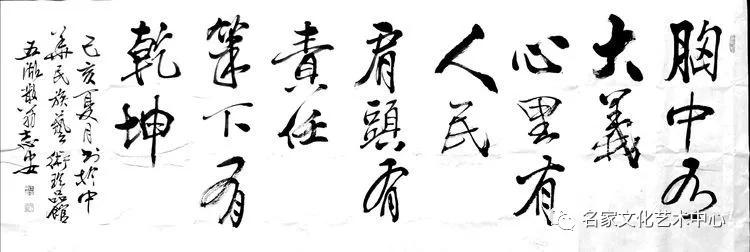 胸中有
大義
心里有
人民
肩頭有
責任
筆下有
乾坤
己亥夏月书於中
華民族藝術珍品館
五湖散翁志安
名家文化艺术中心